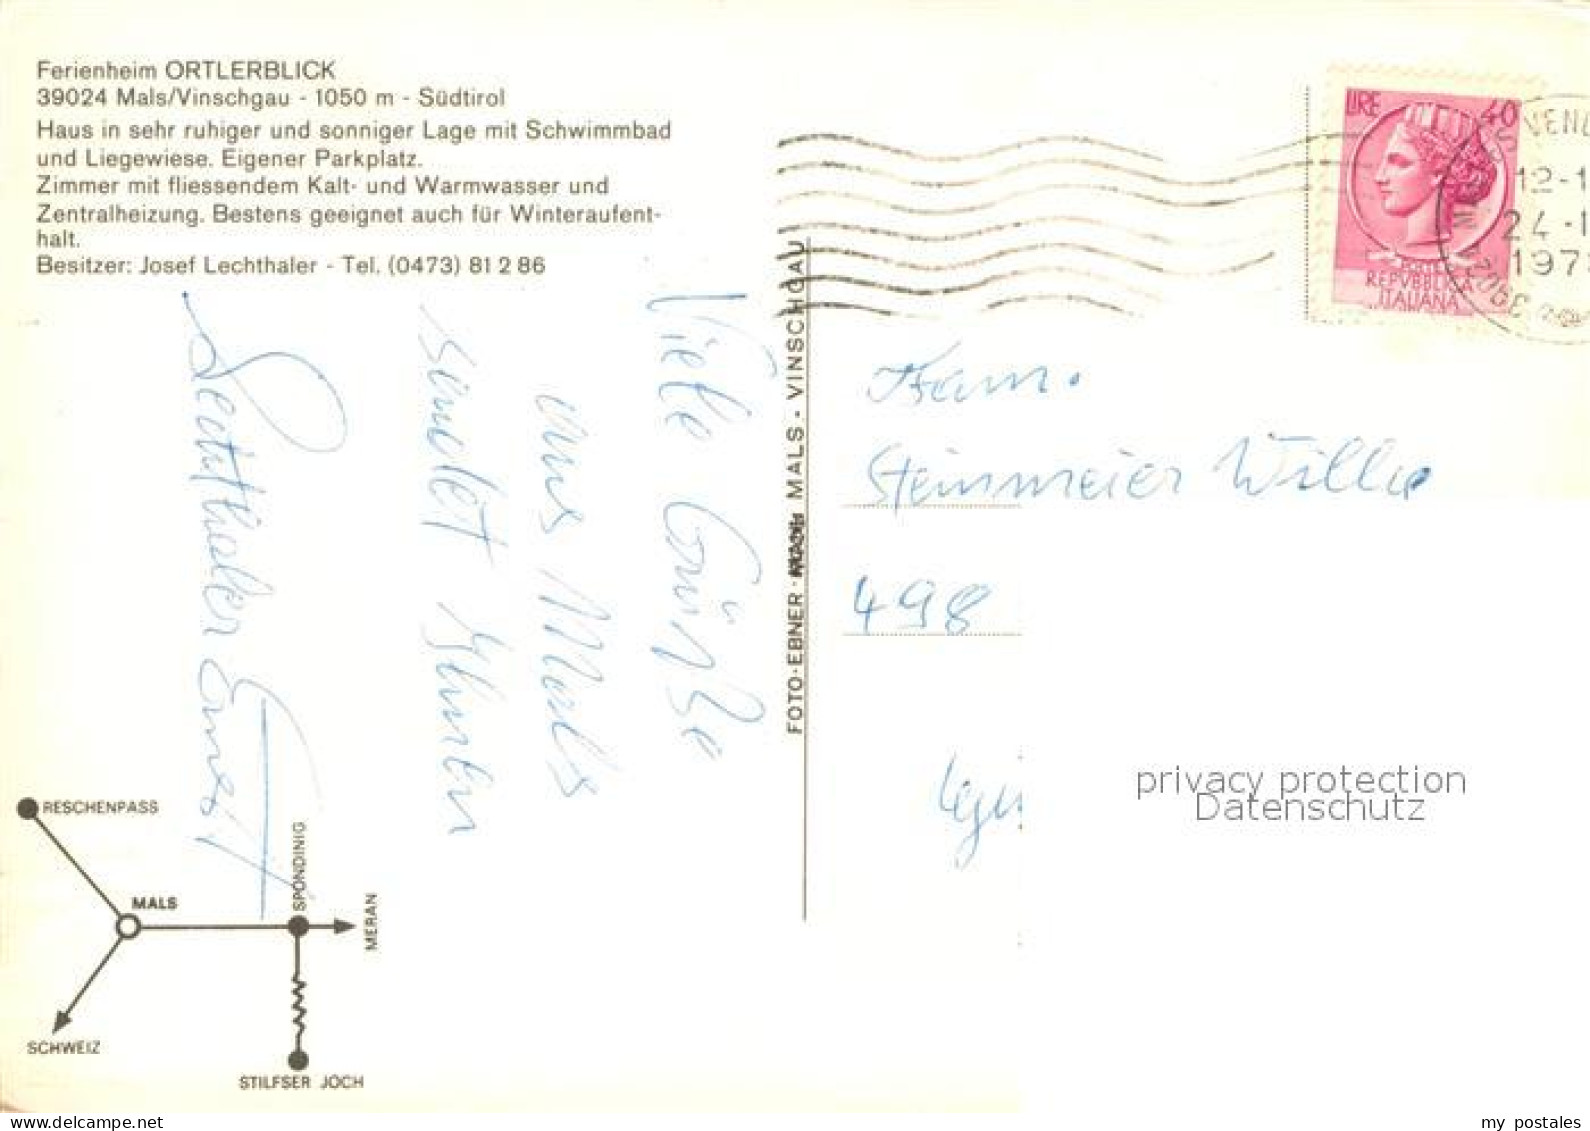 Ferienheim ORTLERBLICK
39024 Mals/Vinschgau - 1050 m - Südtirol
Haus in sehr ruhiger und sonniger Lage mit Schwimmbad
und Liegewiese. Eigener Parkplatz.
Zimmer mit fliessendem Kalt- und Warmwasser und
Zentralheizung. Bestens geeignet auch für Winteraufent-
halt.
Besitzer: Josef Lechthaler - Tel. (0473) 81 2 86
Viele Grüße
aus Mals
sendet Ihnen
Lechthaler Ernst
FOTO-EBNER - MALS - VINSCHGAU
LIRE 40
POSTE
REPVBBLICA
ITALIANA
12-1
24-1
197
Fam.
Steinmeier Willi
498
privacy protection
Datenschutz
RESCHENPASS
MALS
SPONDINIG
MERAN
SCHWEIZ
STILFSER JOCH
www.delcampe.net
my_postales